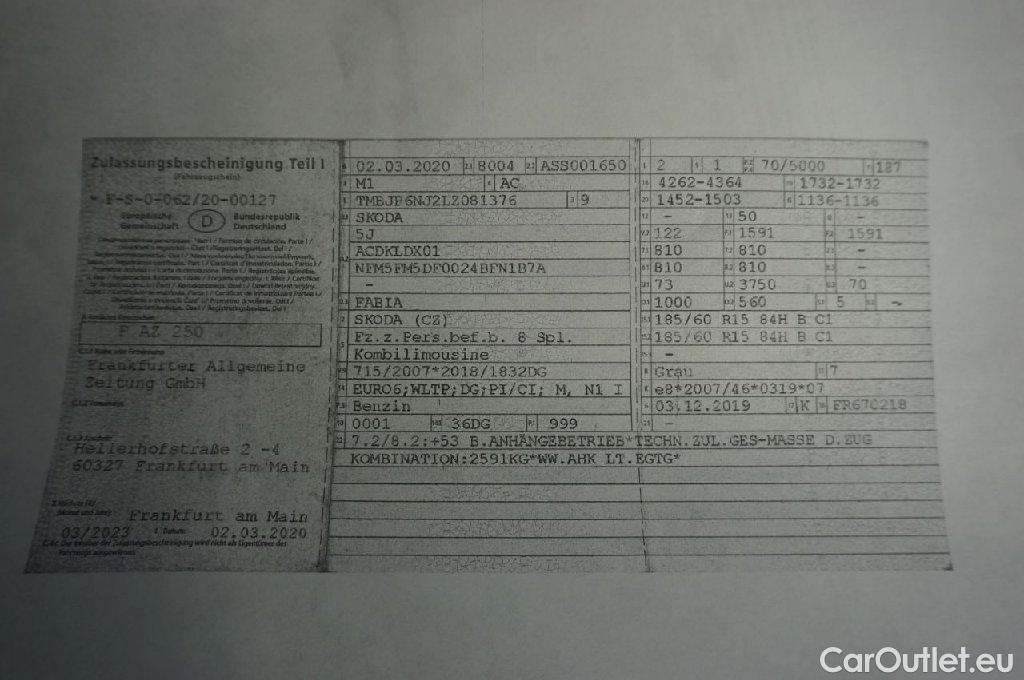 Zulassungsbescheinigung Teil I
(Fahrzeugschein)
F-S-0-062/20-00127
Europäische Gemeinschaft D Bundesrepublik Deutschland
F AZ 250
C.1.1 Name oder Firmenname
Frankfurter Allgemeine
Zeitung GmbH
C.1.2 Vorname(n)
C.1.3 Anschrift
Hellerhofstraße 2 -4
60327 Frankfurt am Main
Frankfurt am Main
03/2023 02.03.2020
02.03.2020 8004 ASS001650
M1 AC
TMBJP6NJ2LZ081376 9
SKODA
5J
ACDKLDX01
NFM5FM5DF0024BFN1B7A
-
FABIA
SKODA (CZ)
Fz.z.Pers.bef.b. 8 Spl.
Kombilimousine
715/2007*2018/1832DG
EURO6;WLTP;DG;PI/CI; M, N1 I
Benzin
0001 36DG 999
2 1 70/5000 187
4262-4364 1732-1732
1452-1503 1136-1136
- 50 -
122 1591 1591
810 810 -
810 810 -
73 3750 70
1000 560 5 -
185/60 R15 84H B C1
185/60 R15 84H B C1
-
Grau 7
e8*2007/46*0319*07
03.12.2019 K ER670218
-
7.2/8.2:+53 B.ANHÄNGEBETRIEB*TECHN.ZUL.GES-MASSE D.ZUG
KOMBINATION:2591KG*WW.AHK LT.EGTG*
CarOutlet.eu